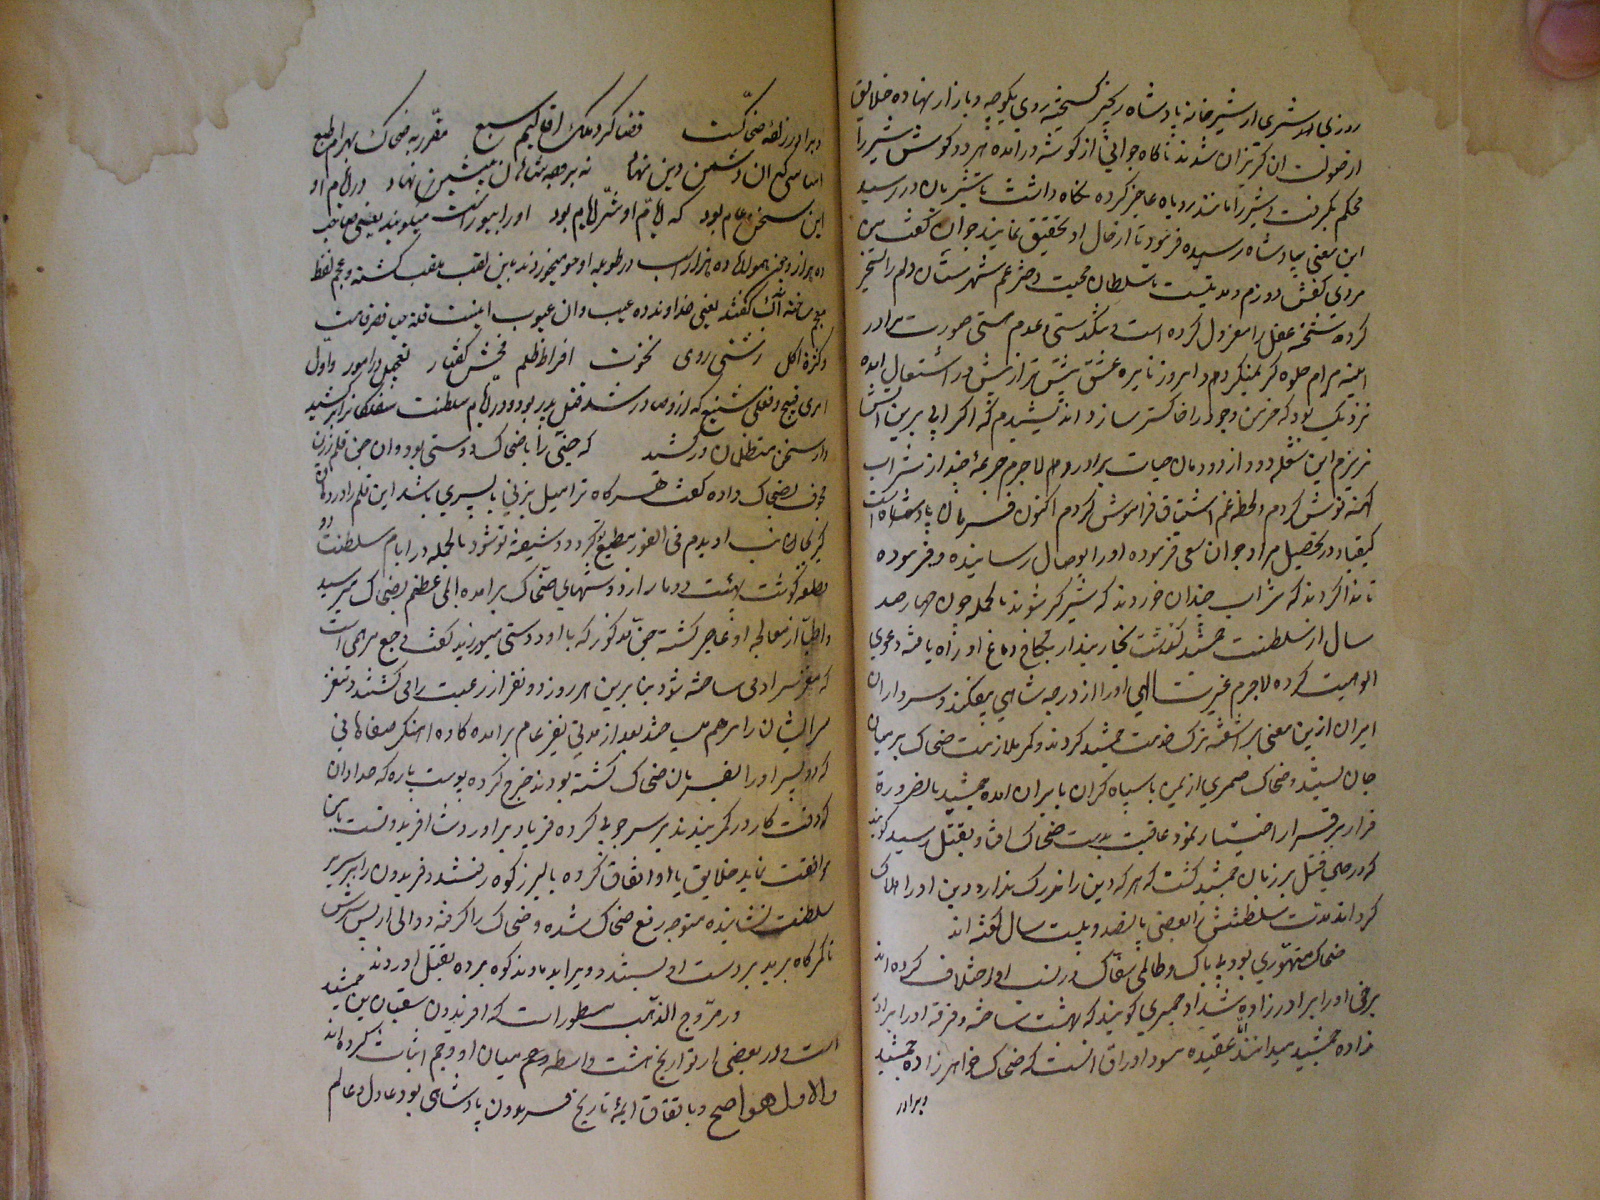 روزی شیری از شیرخانه پادشاه زنجیر کسیخته روی بکوچه و بازار نهاده خلایق
از صولت ان کریزان شدند ناکاه جوانی از کوشه درآمده هر دو کوش شیر را
محکم بکرفت و شیر را مانند روباه عاجز کرده نکاه داشت تا شیربان در رسید
این معنی بپادشاه رسیده فرمود تا از حال او تحقیق نمایند جوان کفت من
مردی کفش دوزم و مدتیست تا سلطان محبت دختر عم شهرستان دلم را تسخیر
کرده شحنه عقل را معزول کرده است و تنکدستی و عدم هستی صورت مراد در
آینه مرام جلوه کر نمیکردم و امروز نایره عشق بیش‌تر از پیش در اشتعال آمده
نزدیک بود که خرمن وجود را خاکستر سازد اندیشیدم که اکر آبی برین آتش
نریزم این شعله دود از دودمان حیات برآورد لاجرم جرعهٔ چند از شراب
کهنه نوش کردم و لحظه غم اشتیاق فراموش کردم اکنون فرمان پادشاه است
کیقباد در تحصیل مراد جوان سعی فرموده او را بوصال رسانیده و فرموده
تا ندا کردند که شراب چندان خورند که شیر کیر شوند بالجمله چون چهارصد
سال از سلطنت جمشید کذشت بخار پندار بکاخ دماغ او راه یافته دعوی
الوهیت کرده لاجرم غیرت الهی او را از درجه شاهی بیفکند و سرداران
ایران ازین معنی برآشفته ترک خدمت جمشید کردند و کمر ملازمت ضحاک بر میان
جان بستند و ضحاک حمیری از یمن با سپاه کران بایران آمده جمشید بالضرورة
فرار بر قرار اختیار نمود عاقبت بدست ضحاک افتاد و بقتل رسید کویند
که در حین قتل بر زبان جمشید کذشت که هر که دین را خدرک ندارد دین او را هلاک
کرداند مدت سلطنتش را بعضی پانصد و بیست سال کفته اند
ضحاک متهوری بود بی باک و ظالمی سفاک در نسب او اختلاف کرده اند
برخی او را برادرزاده شداد حمیری کویند که بهشت ساخته و فرقه او را برادر
زاده جمشید میدانند عقیده مسود اوراق آنست که ضحاک خواهرزاده جمشید
و برادر
و برادرزاده ضحاکست قضا کرد ملک اقالیم سبع مقرر به ضحاک بهرام طبع
اساسی که آن دشمن دین نهاد نه بر وجه شاهان پیشین نهاد در ایام او
این سخن عام بود که ایام او شر ایام بود او را بیوراسب میکویند یعنی صاحب
ده هزار اسب در طویله او جو میخوردند باین لقب ملقب کشته و عجم لفظ
ده آک کفتند یعنی خداوند ده عیب و آن عیوب اینست قامت
و کثرة اکل زشتی روی نخوت افراط ظلم فحش کفتار تعجیل در امور و اول
امری قبیح و فعلی شنیع که از وی صادر شد قتل پدر بود و در ایام سلطنت
داد سخن متظلمان در کشید که جنی را با ضحاک دوستی بود و آن جن قلم زرین
مجوف بضحاک داده کفت هرکاه ترا میل بزنی یا پسری باشد این قلم را در دهان
او بدم فی الفور مطیع تو کردد و شیفته تو شود بالجمله در ایام سلطنت دو
قطعه کوشت بهیئت دو مار از دوشهای ضحاک برآمده المی عظیم بضحاک میرسید
و اطبا از معالجه او عاجز کشته جن مذکور که با او دوستی میورزید کفت
که مغز سر آدمی ساخته شود بنابرین هر روز دو نفر از رعیت را می کشتند و مغز
سر ایشان را مرهم می ساختند بعد از مدتی نفیر عام برآمده کاوه آهنکر صفاهانی
که دو پسر او را بفرمان ضحاک کشته بودند خروج کرده پوست پاره که حدادان
در وقت کار در کمر بندند بر سر چوبی کرده فریاد برآورد
موافقت نماید خلایق با او اتفاق کرده بالبرز کوه رفتند و فریدون را بر سریر
سلطنت نشانیده متوجه رفع ضحاک شده و ضحاک را کرفته دوالی از پس سرش
تا کمرکاه برید بر دست او بستند و ویرا بدماوند کوه برده بقتل آوردند
در مروج الذهب مسطور است که افریدون بن جمشید
است و در بعضی از تواریخ هشت واسطه میان او و جم اثبات کرده اند
والاول هو اصح و باتفاق ایمهٔ تاریخ فریدون پادشاهی بود عادل و عالم